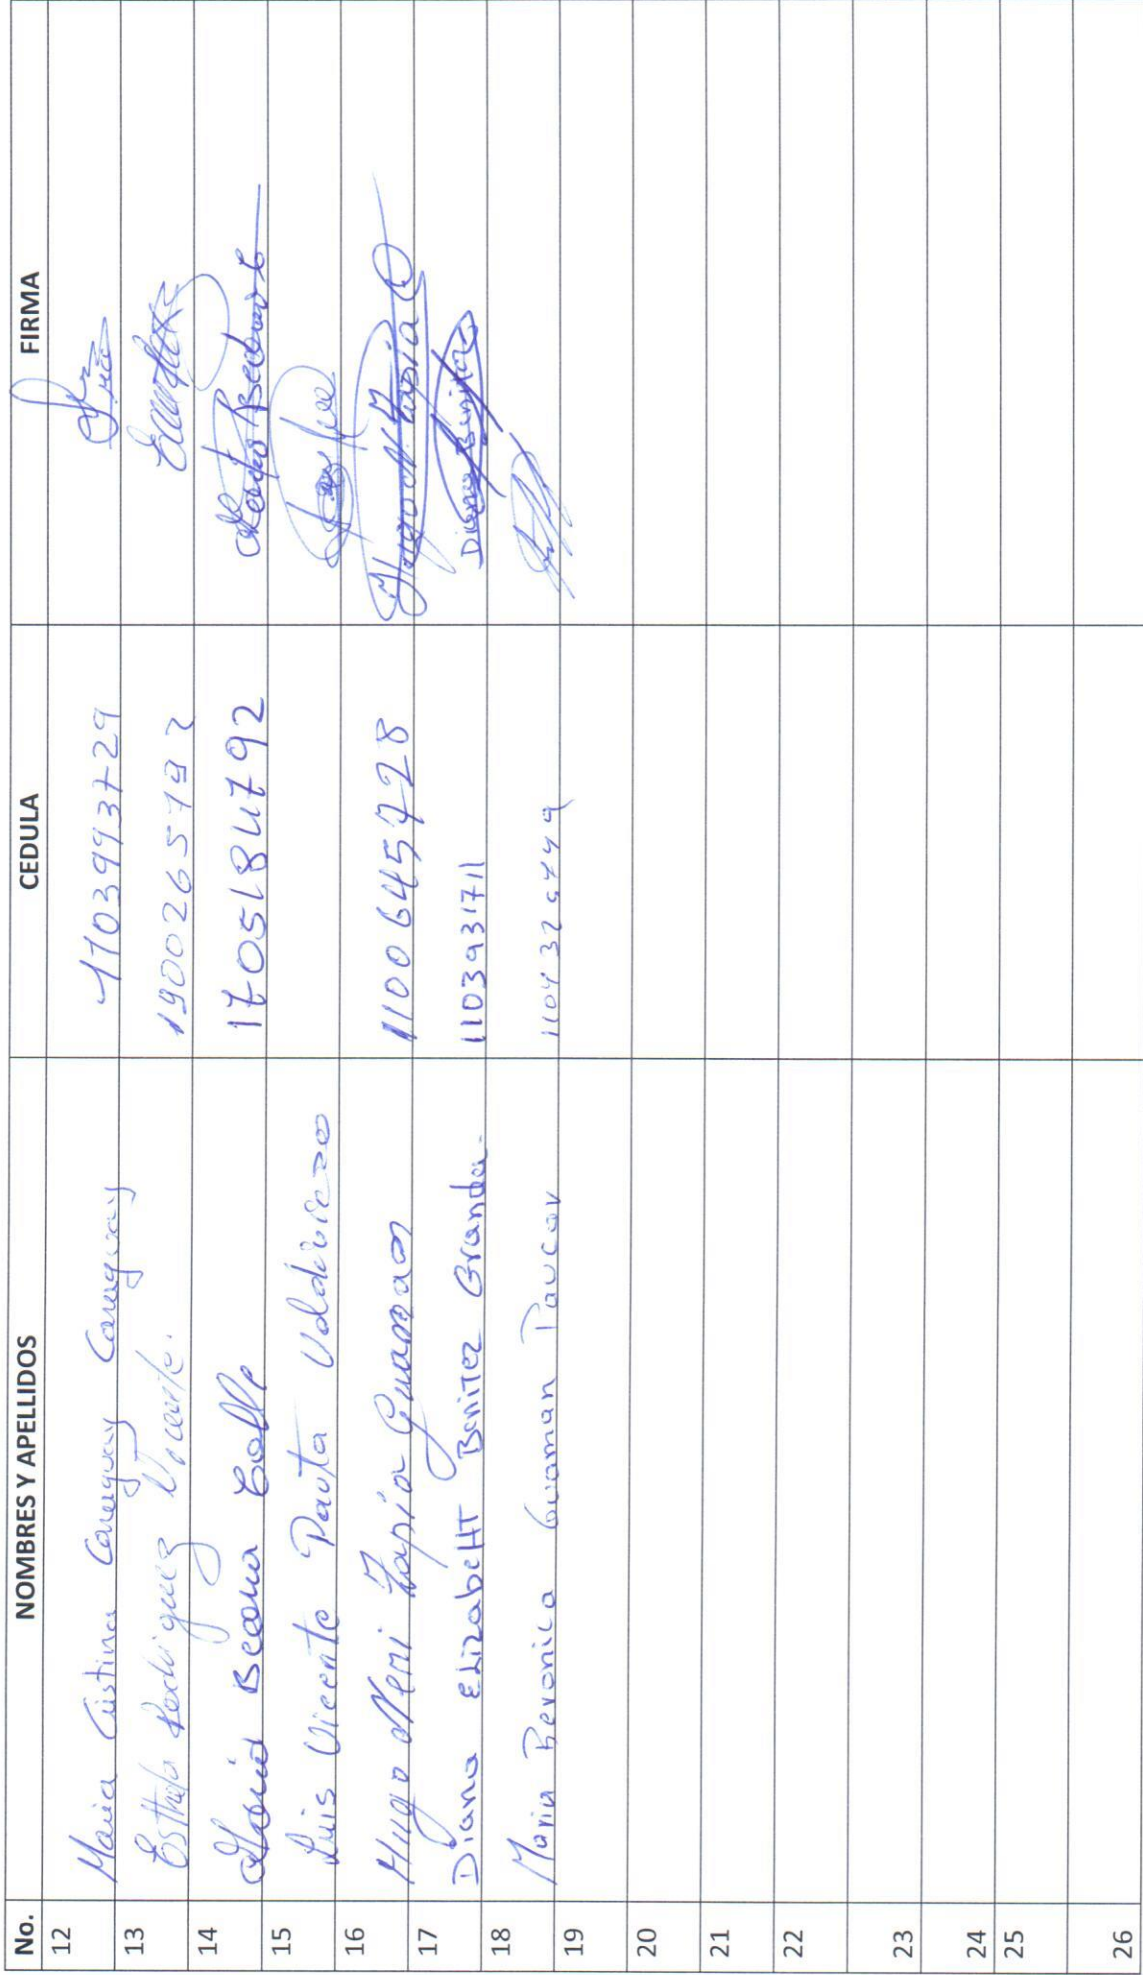 No. NOMBRES Y APELLIDOS CEDULA FIRMA
12 Maria Cistina Caraguay Caraguay 1103993729
13 Esthela Rodriguez Vicente. 1900265792
14 Maria Beatriz Calle 1705184792
15 Luis Vicente Pauta Valdiviezo
16 Hugo Neri Tapia Guaman 1100645728 Hugo N Tapia G
17 Diana ElizabeHT Benitez Granda. 1103931711 Diana Benitez
18 Maria Beronica Guaman Paucar
19
20
21
22
23
24
25
26